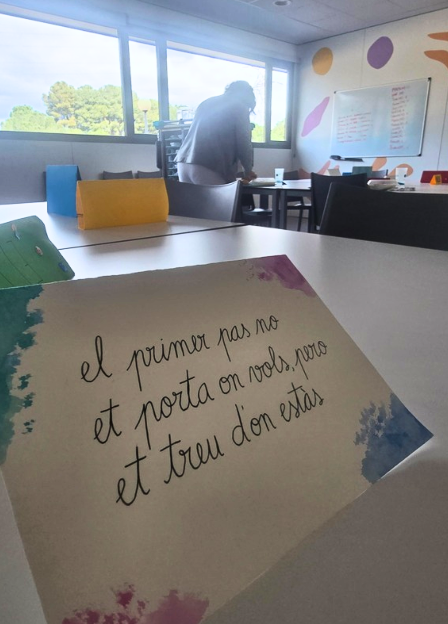 el primer pas no
et porta on vols, pero
et treu d'on estàs